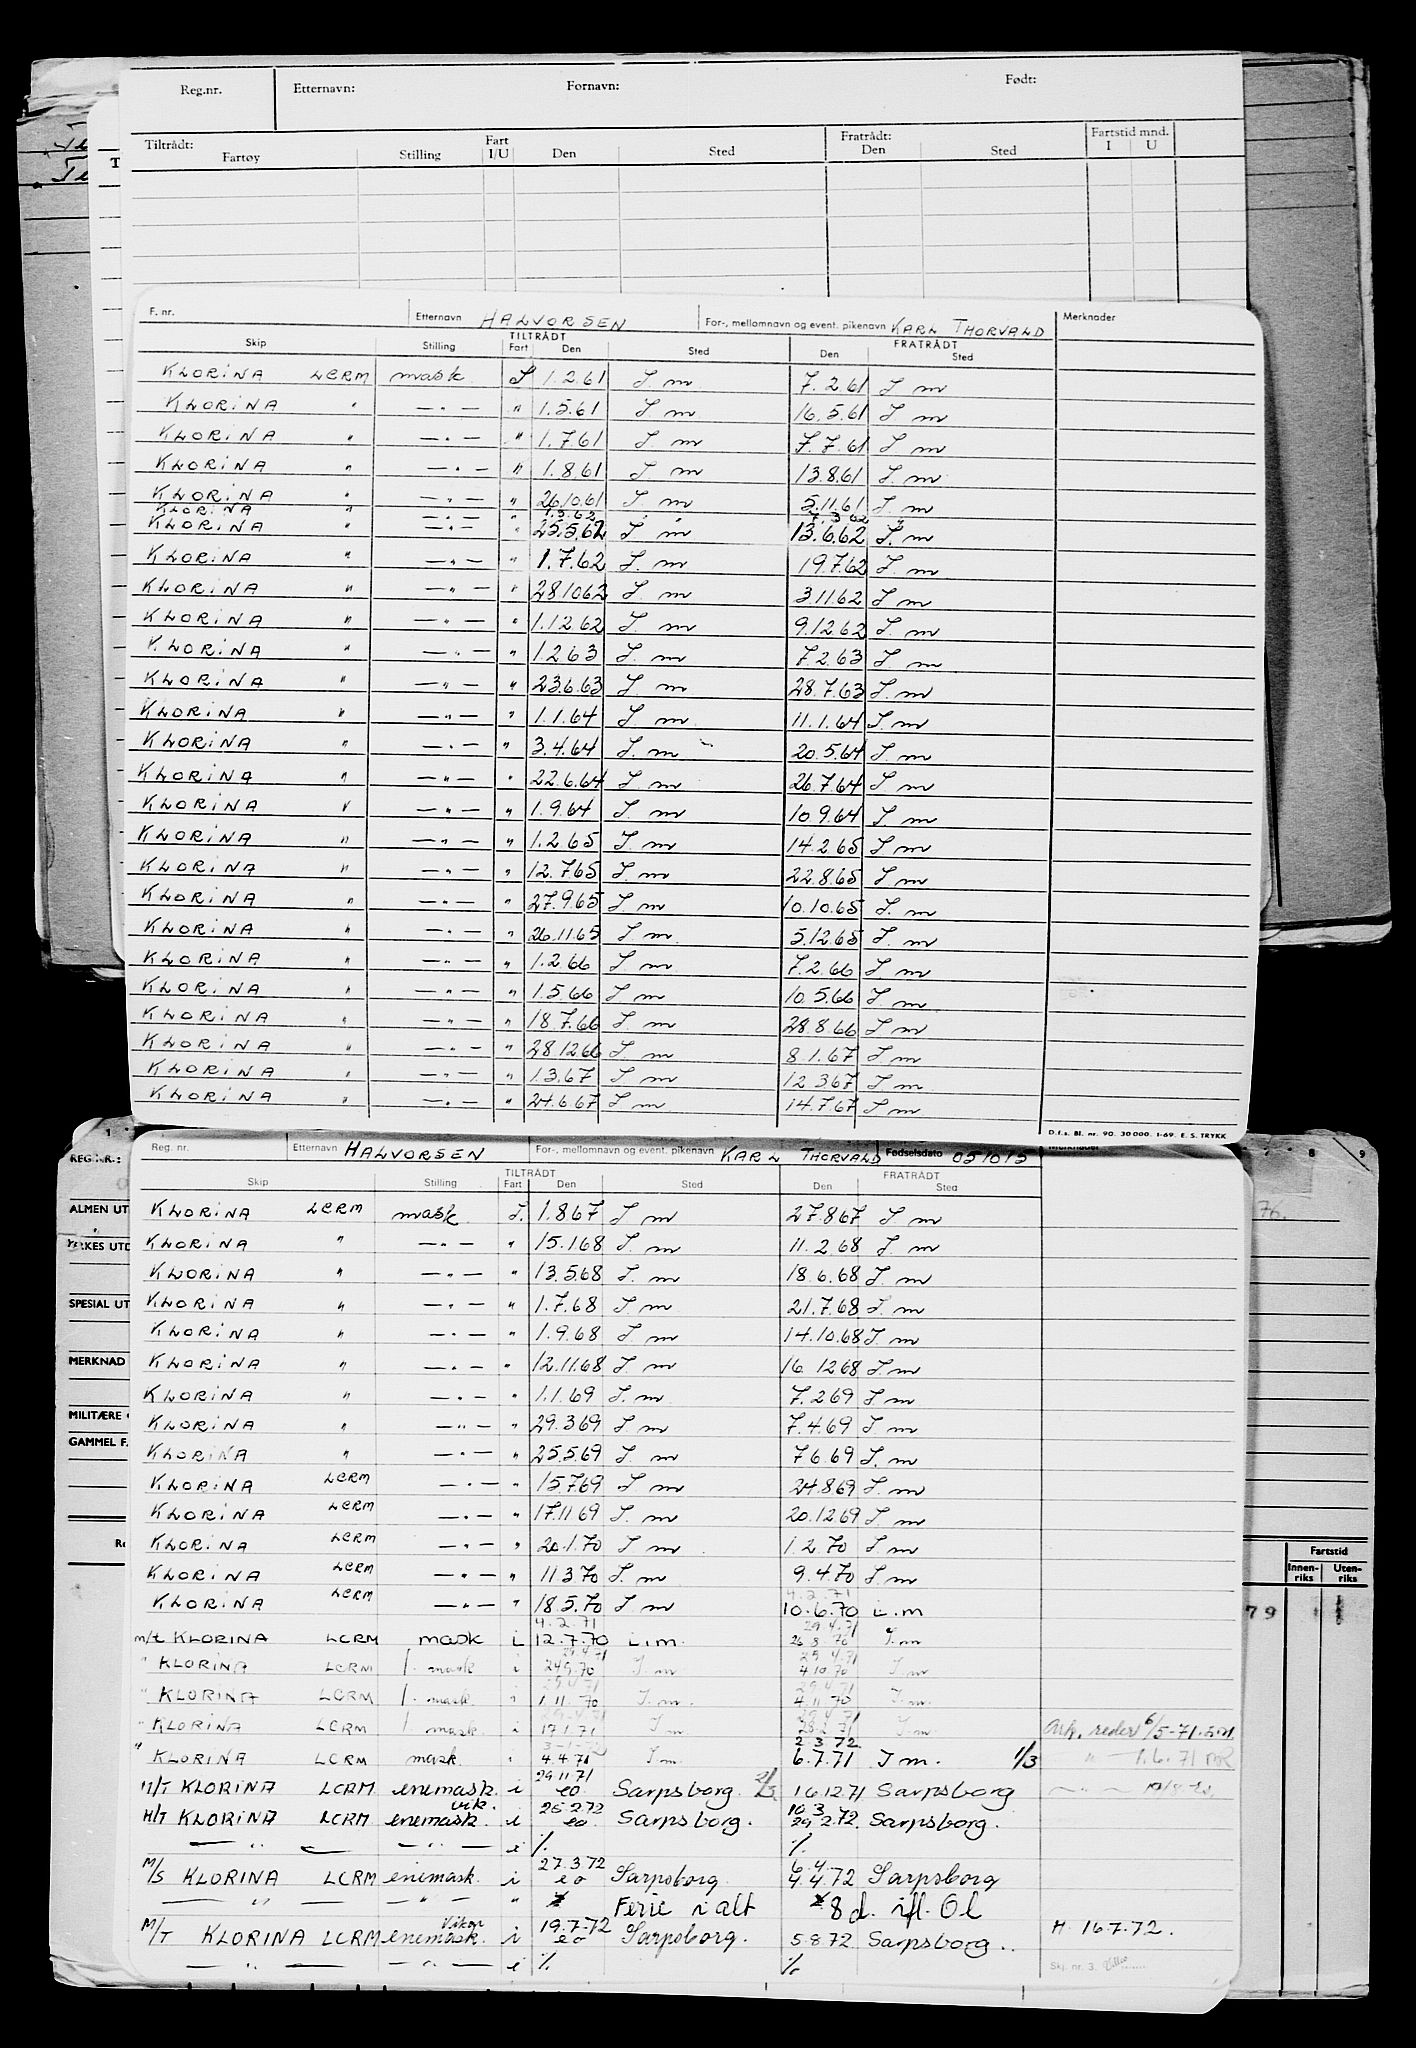 Reg.nr. Etternavn: Fornavn: Født:
Tiltrådt: Fart Fratrådt: Fartstid mnd.
Fartøy Stilling I/U Den Sted Den Sted I U
F. nr. Etternavn HALVORSEN For-, mellomnavn og event. pikenavn KARL THORVALD Merknader
TILTRÅDT FRATRÅDT
Skip Stilling Fart Den Sted Den Sted
KLORINA LCRM mask I 1.2.61 I m 7.2.61 I m
KLORINA " — " — " 1.5.61 I. m 16.5.61 I m
KLORINA " — " — " 1.7.61 I. m 7.7.61 I m
KLORINA " — " — " 1.8.61 I m 13.8.61 I. m
KLORINA " — " — " 26.10.61 I m 5.11.61 I. m
KLORINA " — " — " 1.3.62 " " 7.3.62 "
KLORINA " — " — " 25.5.62 I m 13.6.62 I. m
KLORINA " — " — " 1.7.62 I. m 19.7.62 I. m
KLORINA " — " — " 28.10.62 I. m 3.11.62 I. m
KLORINA " — " — " 1.12.62 I. m 9.12.62 I. m
KLORINA " — " — " 1.2.63 I. m 7.2.63 I. m
KLORINA " — " — " 23.6.63 I. m 28.7.63 I. m
KLORINA " — " — " 1.1.64 I. m 11.1.64 I. m
KLORINA " — " — " 3.4.64 I. m 20.5.64 I. m
KLORINA " — " — " 22.6.64 I. m 26.7.64 I. m
KLORINA " — " — " 1.9.64 I. m 10.9.64 I m
KLORINA " — " — " 1.2.65 I. m 14.2.65 I. m
KLORINA " — " — " 12.7.65 I. m 22.8.65 I. m
KLORINA " — " — " 27.9.65 I. m 10.10.65 I. m
KLORINA " — " — " 26.11.65 I. m 5.12.65 I. m
KLORINA " — " — " 1.2.66 I. m 7.2.66 I. m
KLORINA " — " — " 1.5.66 I. m 10.5.66 I. m
KLORINA " — " — " 18.7.66 I. m 28.8.66 I. m
KLORINA " — " — " 28.12.66 I. m 8.1.67 I. m
KLORINA " — " — " 1.3.67 I. m 12.3.67 I. m
KLORINA " — " — " 24.6.67 I. m 14.7.67 I. m
D.f.s. Bl. nr. 90. 30 000. 1-69. E. S. TRYKK
REG.NR.: Reg. nr. Etternavn HALVORSEN For-, mellomnavn og event. pikenavn KARL THORVALD Fødselsdato 051015 Merknader 8 9
TILTRÅDT FRATRÅDT
Skip Stilling Fart Den Sted Den Sted
ALMEN UT KLORINA LCRM mask I. 1.8.67 I. m 27.8.67 I. m 76.
YRKES UTD KLORINA " — " — " 15.1.68 I. m 11.2.68 I. m
KLORINA " — " — " 13.5.68 I. m 18.6.68 I. m
SPESIAL UT KLORINA " — " — " 1.7.68 I. m 21.7.68 I. m
KLORINA " — " — " 1.9.68 I. m 14.10.68 I. m
MERKNAD KLORINA " — " — " 12.11.68 I. m 16.12.68 I. m
KLORINA " — " — " 1.1.69 I. m 7.2.69 I. m
MILITÆRE KLORINA " — " — " 29.3.69 I. m 7.4.69 I. m
GAMMEL F. KLORINA " — " — " 25.5.69 I. m 7.6.69 I. m
KLORINA LCRM — " — " 15.7.69 I. m 24.8.69 I. m
KLORINA LCRM — " — " 17.11.69 I. m 20.12.69 I. m
KLORINA LCRM — " — " 20.1.70 I m 1.2.70 I. m Fartstid
KLORINA LCRM — " — " 11.3.70 I. m 9.4.70 I. m Innen-riks Uten-riks
4.2.71
KLORINA LCRM — " — " 18.5.70 I m 10.6.70 i.m 79
4.2.71 29.4.71
m/t KLORINA LCRM mask i 12.7.70 i.m. I.m
29.4.71 29.4.71
" KLORINA LCRM 1. mask i 24.9.70 I m 4.10.70 I. m
29.4.71 29.4.71
" KLORINA LCRM 1. mask. " 1.11.70 I. m. 4.11.70 I. m.
29.4.71 29.4.71
" KLORINA LCRM 1. mask. i 17.1.71 I m 28.2.71 I. m. 6/5-71
2.3.72
" KLORINA LCRM mask. " 4.4.71 I m. 6.7.71 I m. 1/3
29.11.71
M/T KLORINA LCRM enemask. i eo Sarpsborg 2/3 16.12.71 Sarpsborg
vik. 25.2.72 10.3
M/T KLORINA LCRM enemask. i eo Sarpsborg. 29.2.72. Sarpsborg.
— " — — " — i % %
27.3.72 6.4.
M/S KLORINA LCRM enemask. i eo Sarpsborg 4.4.72 Sarpsborg
— " — — " — " Ferie i alt 8 d. ifl. Ol
Vikar 19.7.72
M/T KLORINA LCRM enemask. i eo Sarpsborg. 5.8.72 Sarpsborg.. H. 16.7.72.
— " — — " — i % % Skj. nr. 3.